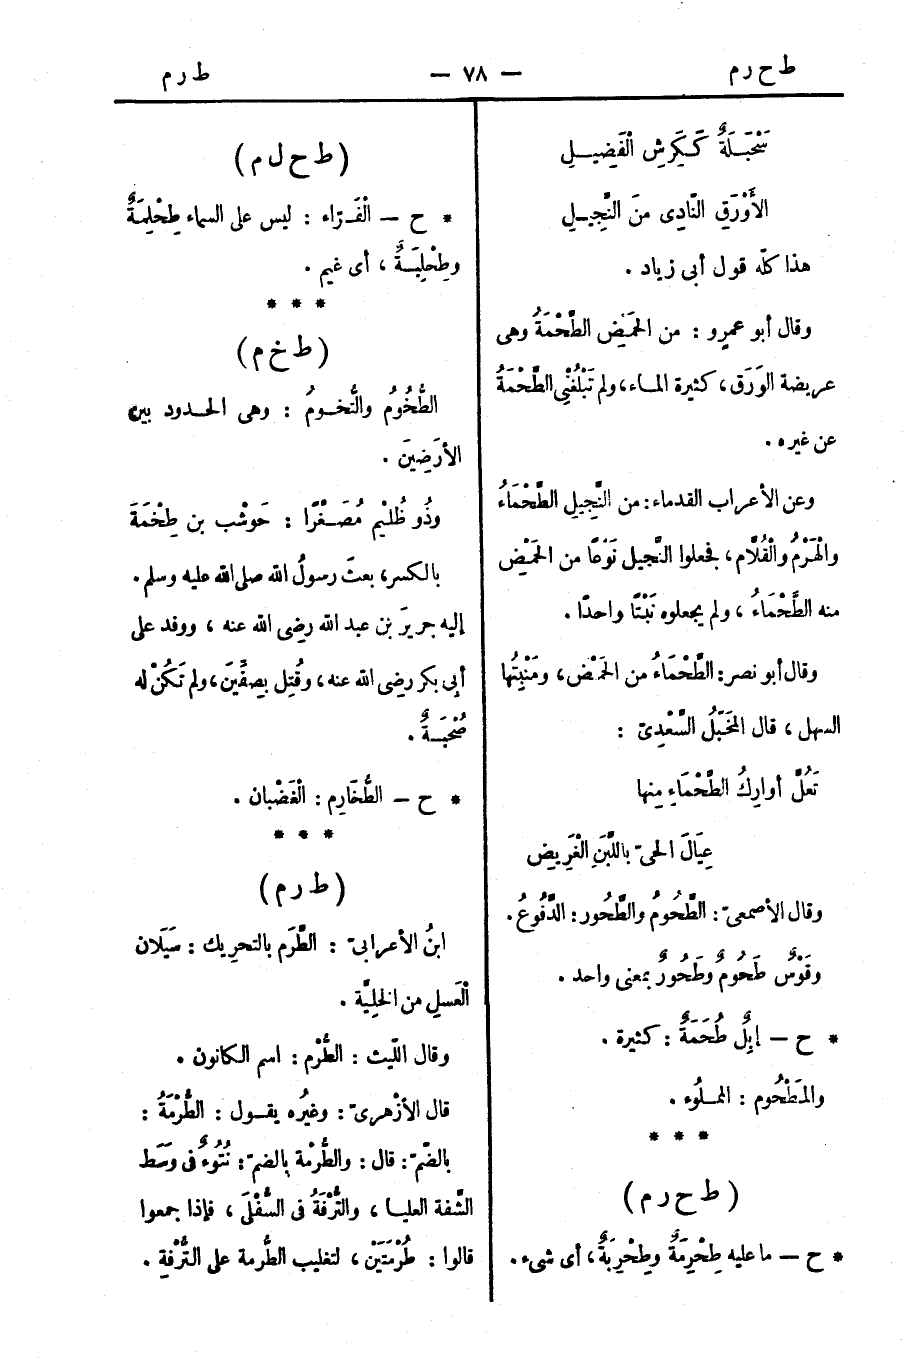 ط ح ر م — ٧٨ — ط ر م
سَحْبَلَةٌ كَكَرِشِ الْفَصِيلِ
الأَوْرَقِ النّادِى منَ النَّجِيلِ
هذا كلّه قول أبى زياد .
وقال أبو عمرٍو : من الحَمْضِ الطَّحْمَةُ وهى
عريضة الوَرَق، كثيرة الماء، ولم تَبْلُغْنِى الطَّحْمَةُ
عن غيره .
وعن الأعراب القدماء: من النَّجِيلِ الطَّحْمَاءُ
والْهَرْمُ والْقُلاَّم، فجعلوا النَّجيل نَوْعًا من الحَمْضِ
منه الطَّحْمَاءُ ، ولم يجعلوه نَبْتًا واحدًا .
وقال أبو نصر: الطَّحْمَاءُ من الحَمْض، ومَنْبِتُها
السهل ، قال المُخَبَّلُ السَّعْدِىّ :
تَعُلُّ أوارِكُ الطَّحْمَاءِ مِنها
عِيَالَ الحىّ باللَّبَنِ الْغَرِيضِ
وقال الأصمعىّ: الطَّحُومُ والطَّحُور: الدَّفُوعُ .
وقَوْسٌ طَحُومٌ وطَحُورٌ بمعنى واحد .
* ح — إبِلٌ طُحَمَةٌ : كثيرة .
والمَطْحُوم : المملُوء .
* * *
( ط ح ر م )
* ح — ما عليه طِحْرِمَةٌ وطِحْرِبَةٌ، أى شىء .
( ط ح ل م )
* ح — الْفَرّاء : ليس على السماء طِحْلِمَةٌ
وطِحْلِبَةٌ ، أى غيم .
* * *
( ط خ م )
الطُّخُومُ والتُّخومُ : وهى الحدود بين
الأرَضِينَ .
وذُو ظُلَيْمٍ مُصَغَّرًا : حَوشْب بن طِخْمَةَ
بالكسر، بعثَ رسولُ الله صلى الله عليه وسلم .
إليه جريرَ بن عبد الله رضى الله عنه ، ووفد على
أبى بكر رضى الله عنه، وقُتِل بِصِفِّينَ، ولم تَكُنْ له
صُحْبَةٌ .
* ح — الطُّخَارِم : الْغَضْبان .
* * *
( ط ر م )
ابنُ الأعرابىّ : الطَّرَم بالتحريك : سَيَلان
الْعَسلِ من الخلِيَّة .
وقال اللّيث : الطُّرْم : اسم الكانون .
قال الأزْهرىّ : وغيُره يقول : الطُّرْمَةُ :
بالضّمّ : قال : والطُّرْمة بالضمّ : نُتُوءٌ فى وَسَط
الشَّفة العليا ، والتُّرْفَةُ فى السُّفْلَى ، فإذا جمعوا
قالوا : طُرْمَتَيْن، لتغليب الطُّرمة على التُّرْفةِ .